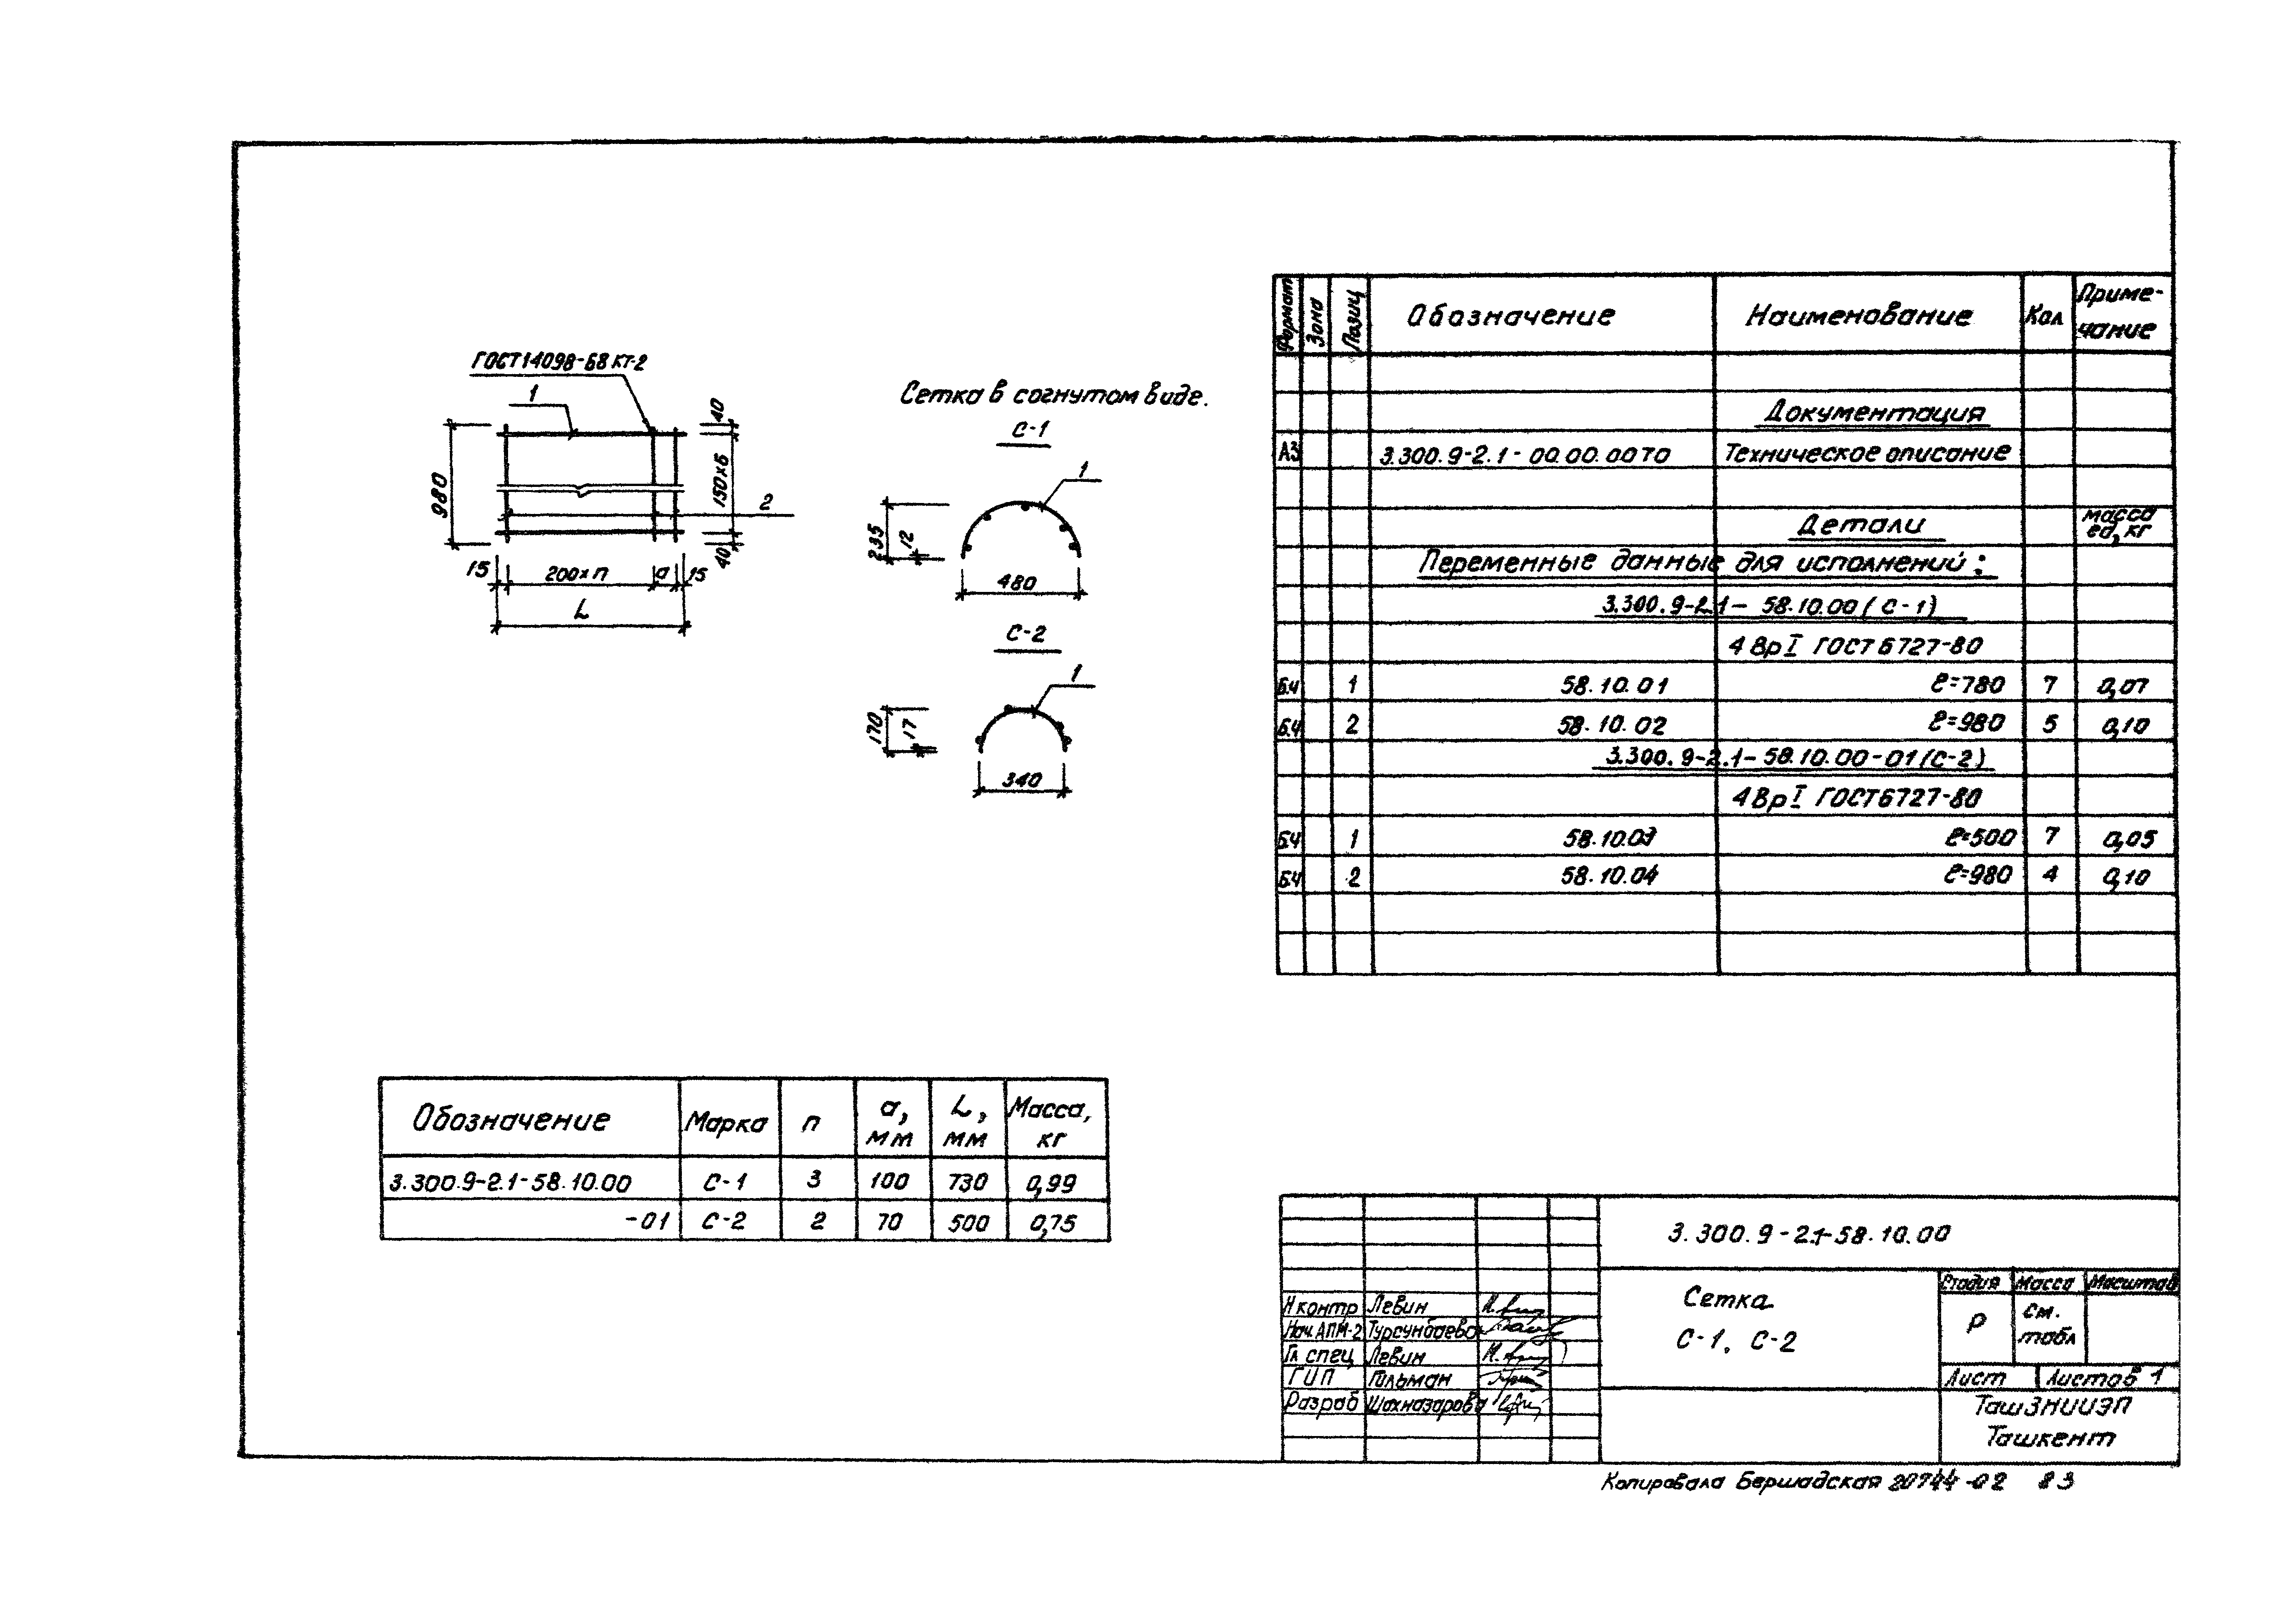 ГОСТ14098-68 КТ-2
1
40
980
150×6
2
40
15 200×п а 15
L
Сетка в согнутом виде.
С-1
1
235
12
480
С-2
1
170
17
340
Формат Зона Позиц Обозначение Наименование Кол Приме-
чание
Документация
А3 3.300.9-2.1-00.00.00ТО Техническое описание
Детали масса
ед, кг
Переменные данные для исполнений:
3.300.9-2.1-58.10.00(С-1)
4ВрI ГОСТ6727-80
Б.Ч 1 58.10.01 ℓ=780 7 0,07
Б.Ч 2 58.10.02 ℓ=980 5 0,10
3.300.9-2.1-58.10.00-01(С-2)
4ВрI ГОСТ6727-80
Б.Ч 1 58.10.03 ℓ=500 7 0,05
Б.Ч 2 58.10.04 ℓ=980 4 0,10
Обозначение Марка п а, мм L, мм Масса, кг
3.300.9-2.1-58.10.00 С-1 3 100 730 0,99
-01 С-2 2 70 500 0,75
3.300.9-2.1-58.10.00
Сетка
С-1, С-2
Стадия Масса Масштаб
Р см.
табл
Лист Листов 1
ТашЗНИИЭП
Ташкент
Н контр Левин
Нач.АПМ-2 Турсунбаева
Гл спец Левин
ГИП Гильман
Разраб Шахназарова
Копировала Бершадская 20744-02 83